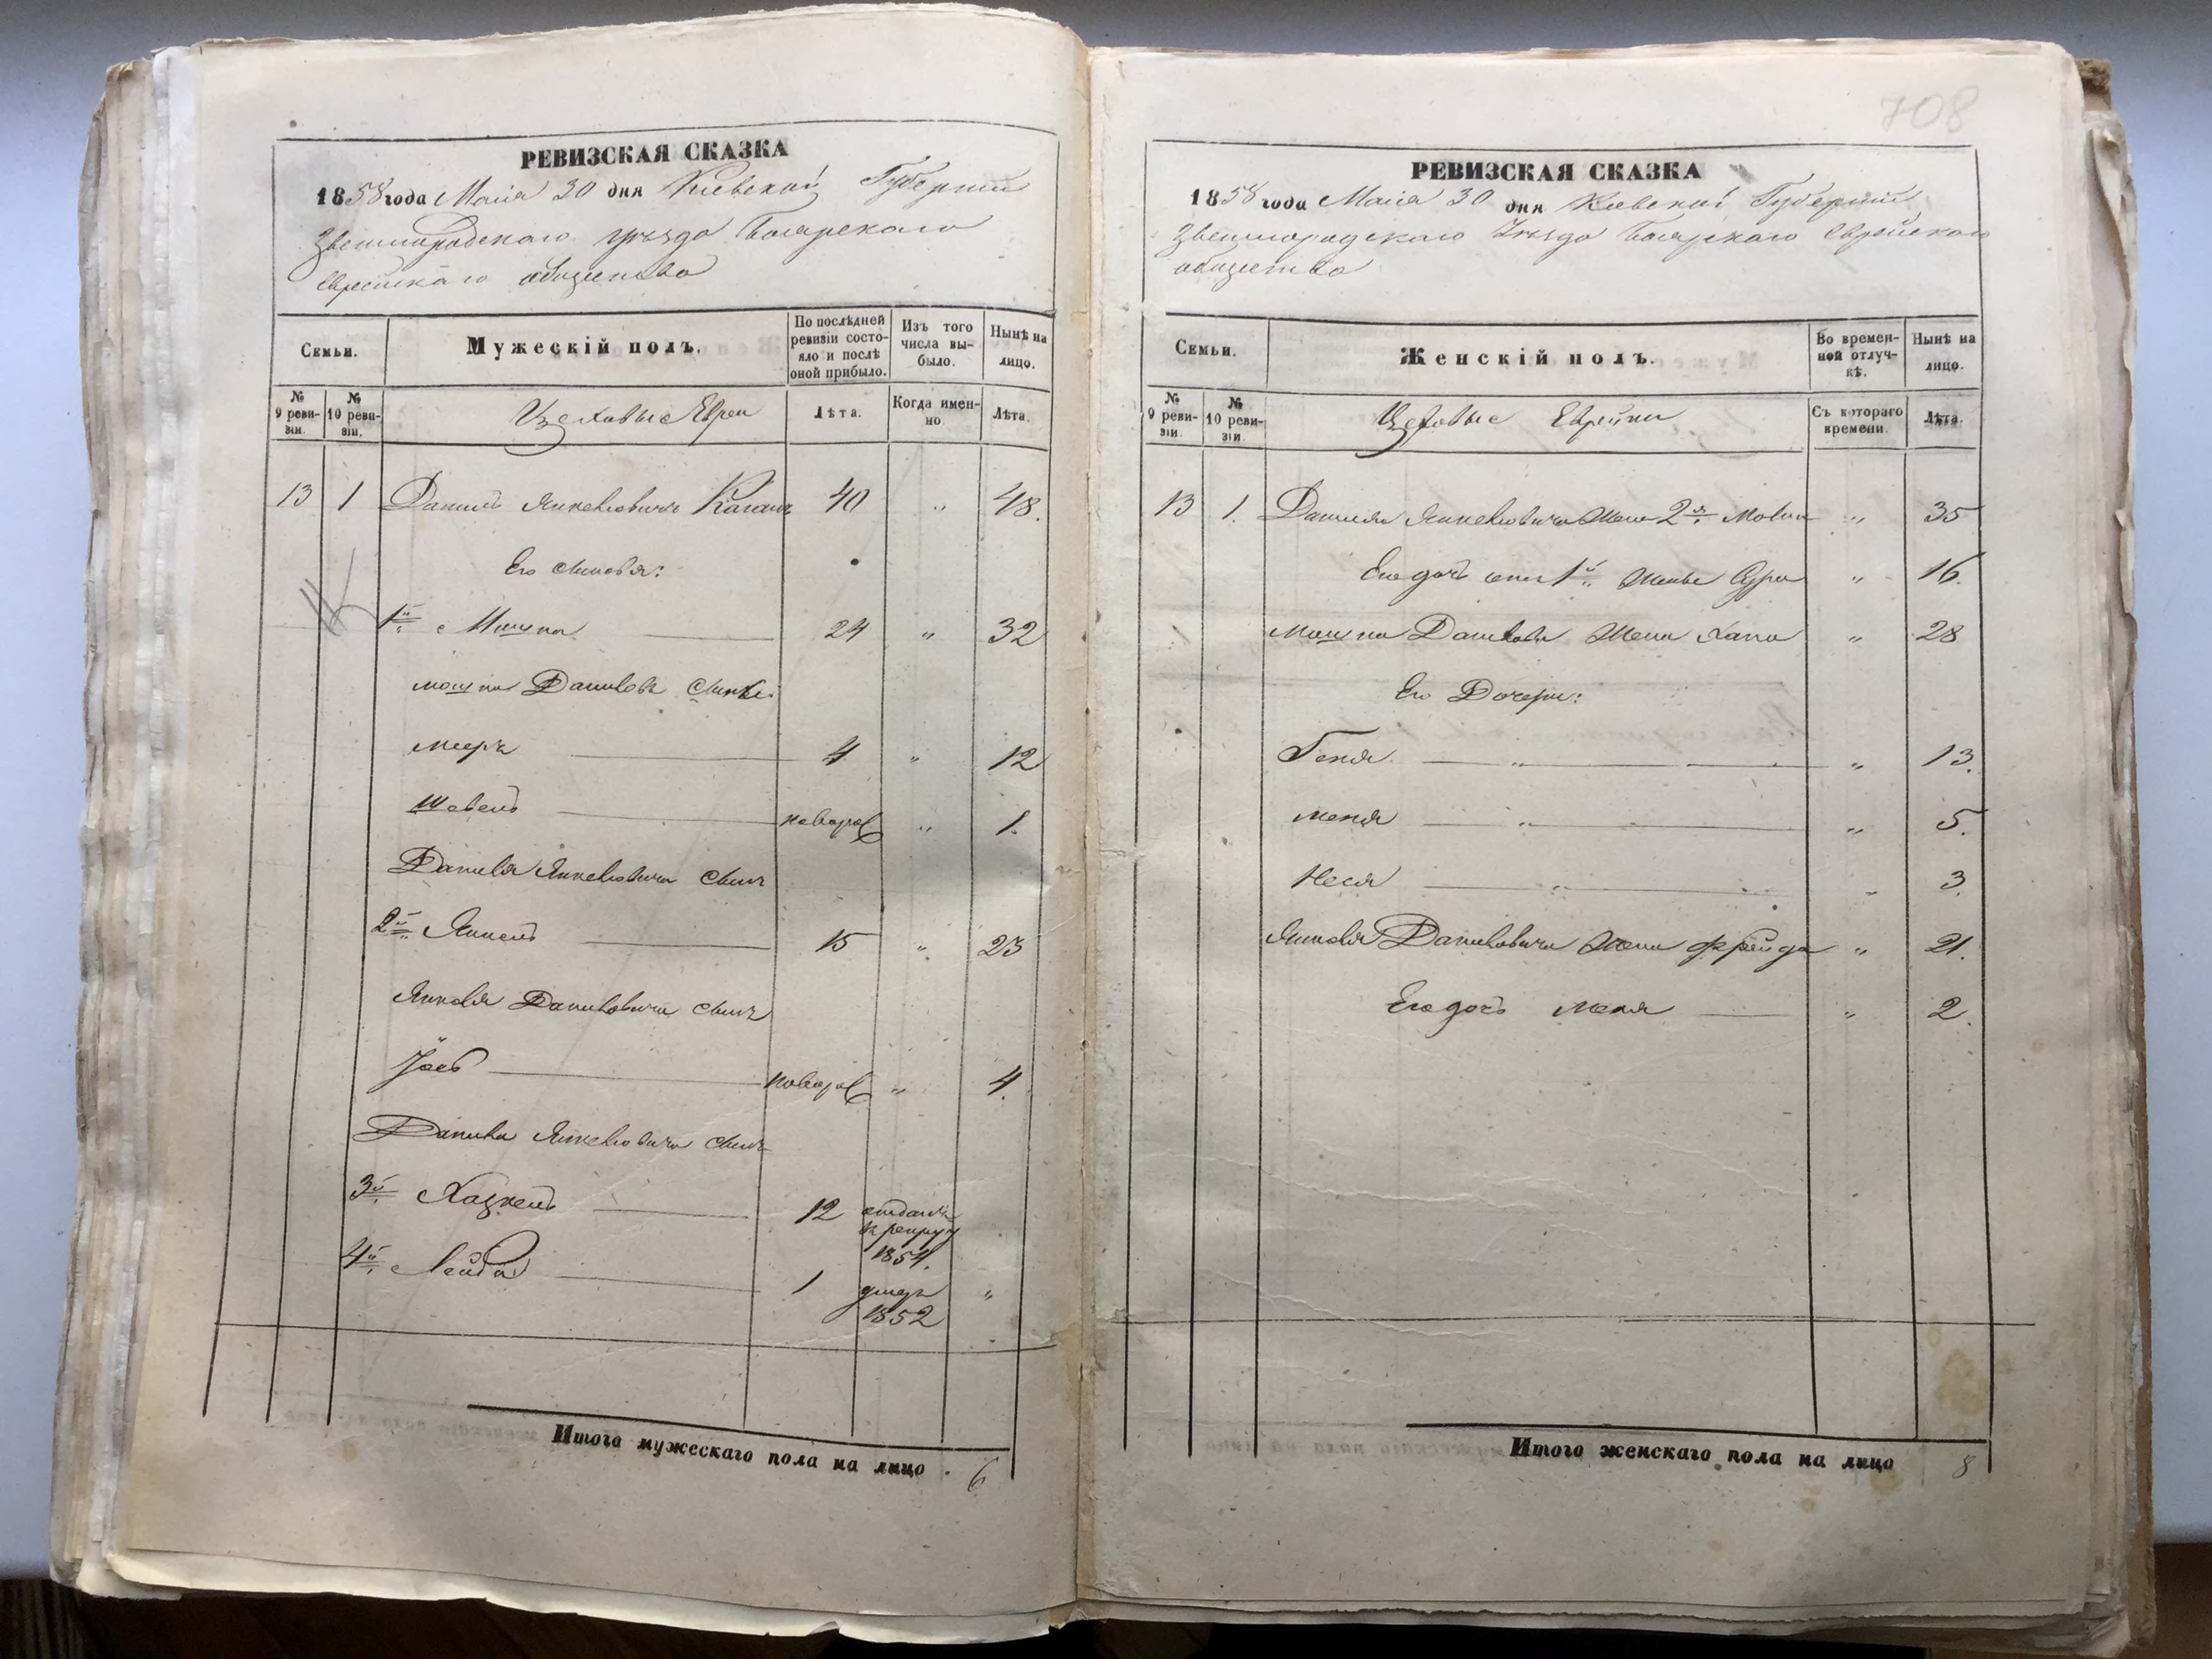 РЕВИЗСКАЯ СКАЗКА
1858 года Маія 30 дня Кіевской Губерніи
Звенигородскаго уѣзда Боярскаго
Еврейскаго общества
Семьи.
Мужескій полъ.
По послѣдней ревизіи состояло и послѣ оной прибыло.
Изъ того числа выбыло.
Нынѣ на лицо.
№ 9 ревизіи.
№ 10 ревизіи.
Цеховые Евреи
Лѣта.
Когда именно.
Лѣта.
13 1 Данилъ Янкелiовичъ Каганъ 40 „ 48.
Его сыновья:
1й Мошко 24 „ 32
Мошка Данилова сынъ
Мееръ 4 „ 12
Шевель новорож „ 1.
Даниля Янкелiовича сынъ
2й Янкель 15 „ 23
Янкеля Даниловича сынъ
Іось новорож „ 4.
Данила Янкелiовича сынъ
3й Хацкель 12 отданъ
в рекруты
1854.
4й Лейба 1 умеръ „
1852
Итого мужескаго пола на лицо 6
708
РЕВИЗСКАЯ СКАЗКА
1858 года Маія 30 дня Кіевской Губерніи
Звенигородскаго Уѣзда Боярскаго Еврейскаго
общества
Семьи.
Женскій полъ.
Во временной отлучкѣ.
Нынѣ на лицо.
№ 9 ревизіи.
№ 10 ревизіи.
Цеховые Еврейки
Съ котораго времени.
Лѣта.
13 1. Даниля Янкелiовича жена 2я „ 35
Его дочь отъ 1й жены Сура „ 16.
Мошка Данилова жена Хана „ 28
Его Дочери:
Геня „ „ 13.
Меня „ „ 5.
Неся „ „ 3.
Янкеля Даниловича жена Фрейда „ 21.
Его дочь Меня „ 2.
Итого женскаго пола на лицо 8